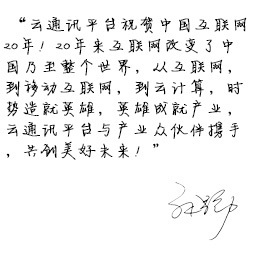 “云通讯平台祝贺中国互联网
20年！20年来互联网改变了中
国乃至整个世界，从互联网，
到移动互联网，到云计算，时
势造就英雄，英雄成就产业，
云通讯平台与产业众伙伴携手
，共创美好未来！”